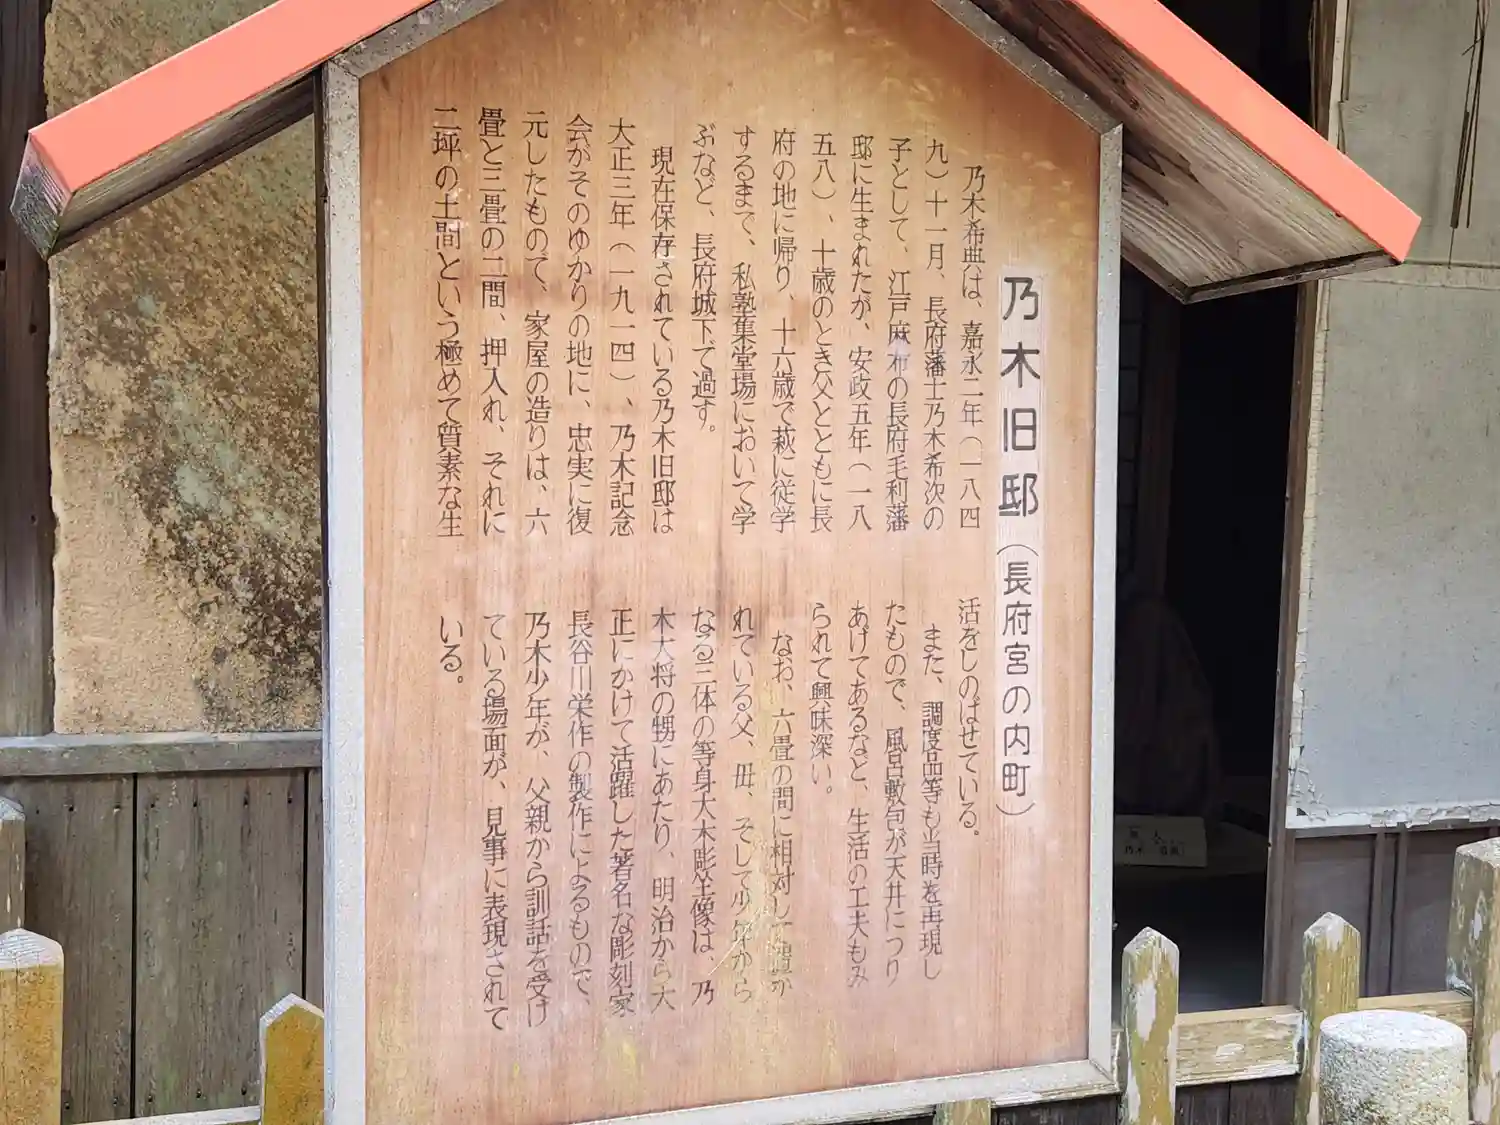 乃木旧邸（長府宮の内町）
乃木希典は、嘉永二年（一八四
九）十一月、長府藩士乃木希次の
子として、江戸麻布の長府毛利藩
邸に生まれたが、安政五年（一八
五八）、十歳のとき父とともに長
府の地に帰り、十六歳で萩に従学
するまで、私塾集堂場において学
ぶなど、長府城下で過す。
現在保存されている乃木旧邸は
大正三年（一九一四）、乃木記念
会がそのゆかりの地に、忠実に復
元したもので、家屋の造りは、六
畳と三畳の二間、押入れ、それに
二坪の土間という極めて質素な生
活をしのばせている。
また、調度品等も当時を再現し
たもので、風呂敷包が天井につり
あげてあるなど、生活の工夫もみ
られて興味深い。
なお、六畳の間に相対して
れている父、母、そして少年から
なる三体の等身大木彫坐像は、乃
木大将の甥にあたり、明治から大
正にかけて活躍した著名な彫刻家
長谷川栄作の製作によるもので、
乃木少年が、父親から訓話を受け
ている場面が、見事に表現されて
いる。